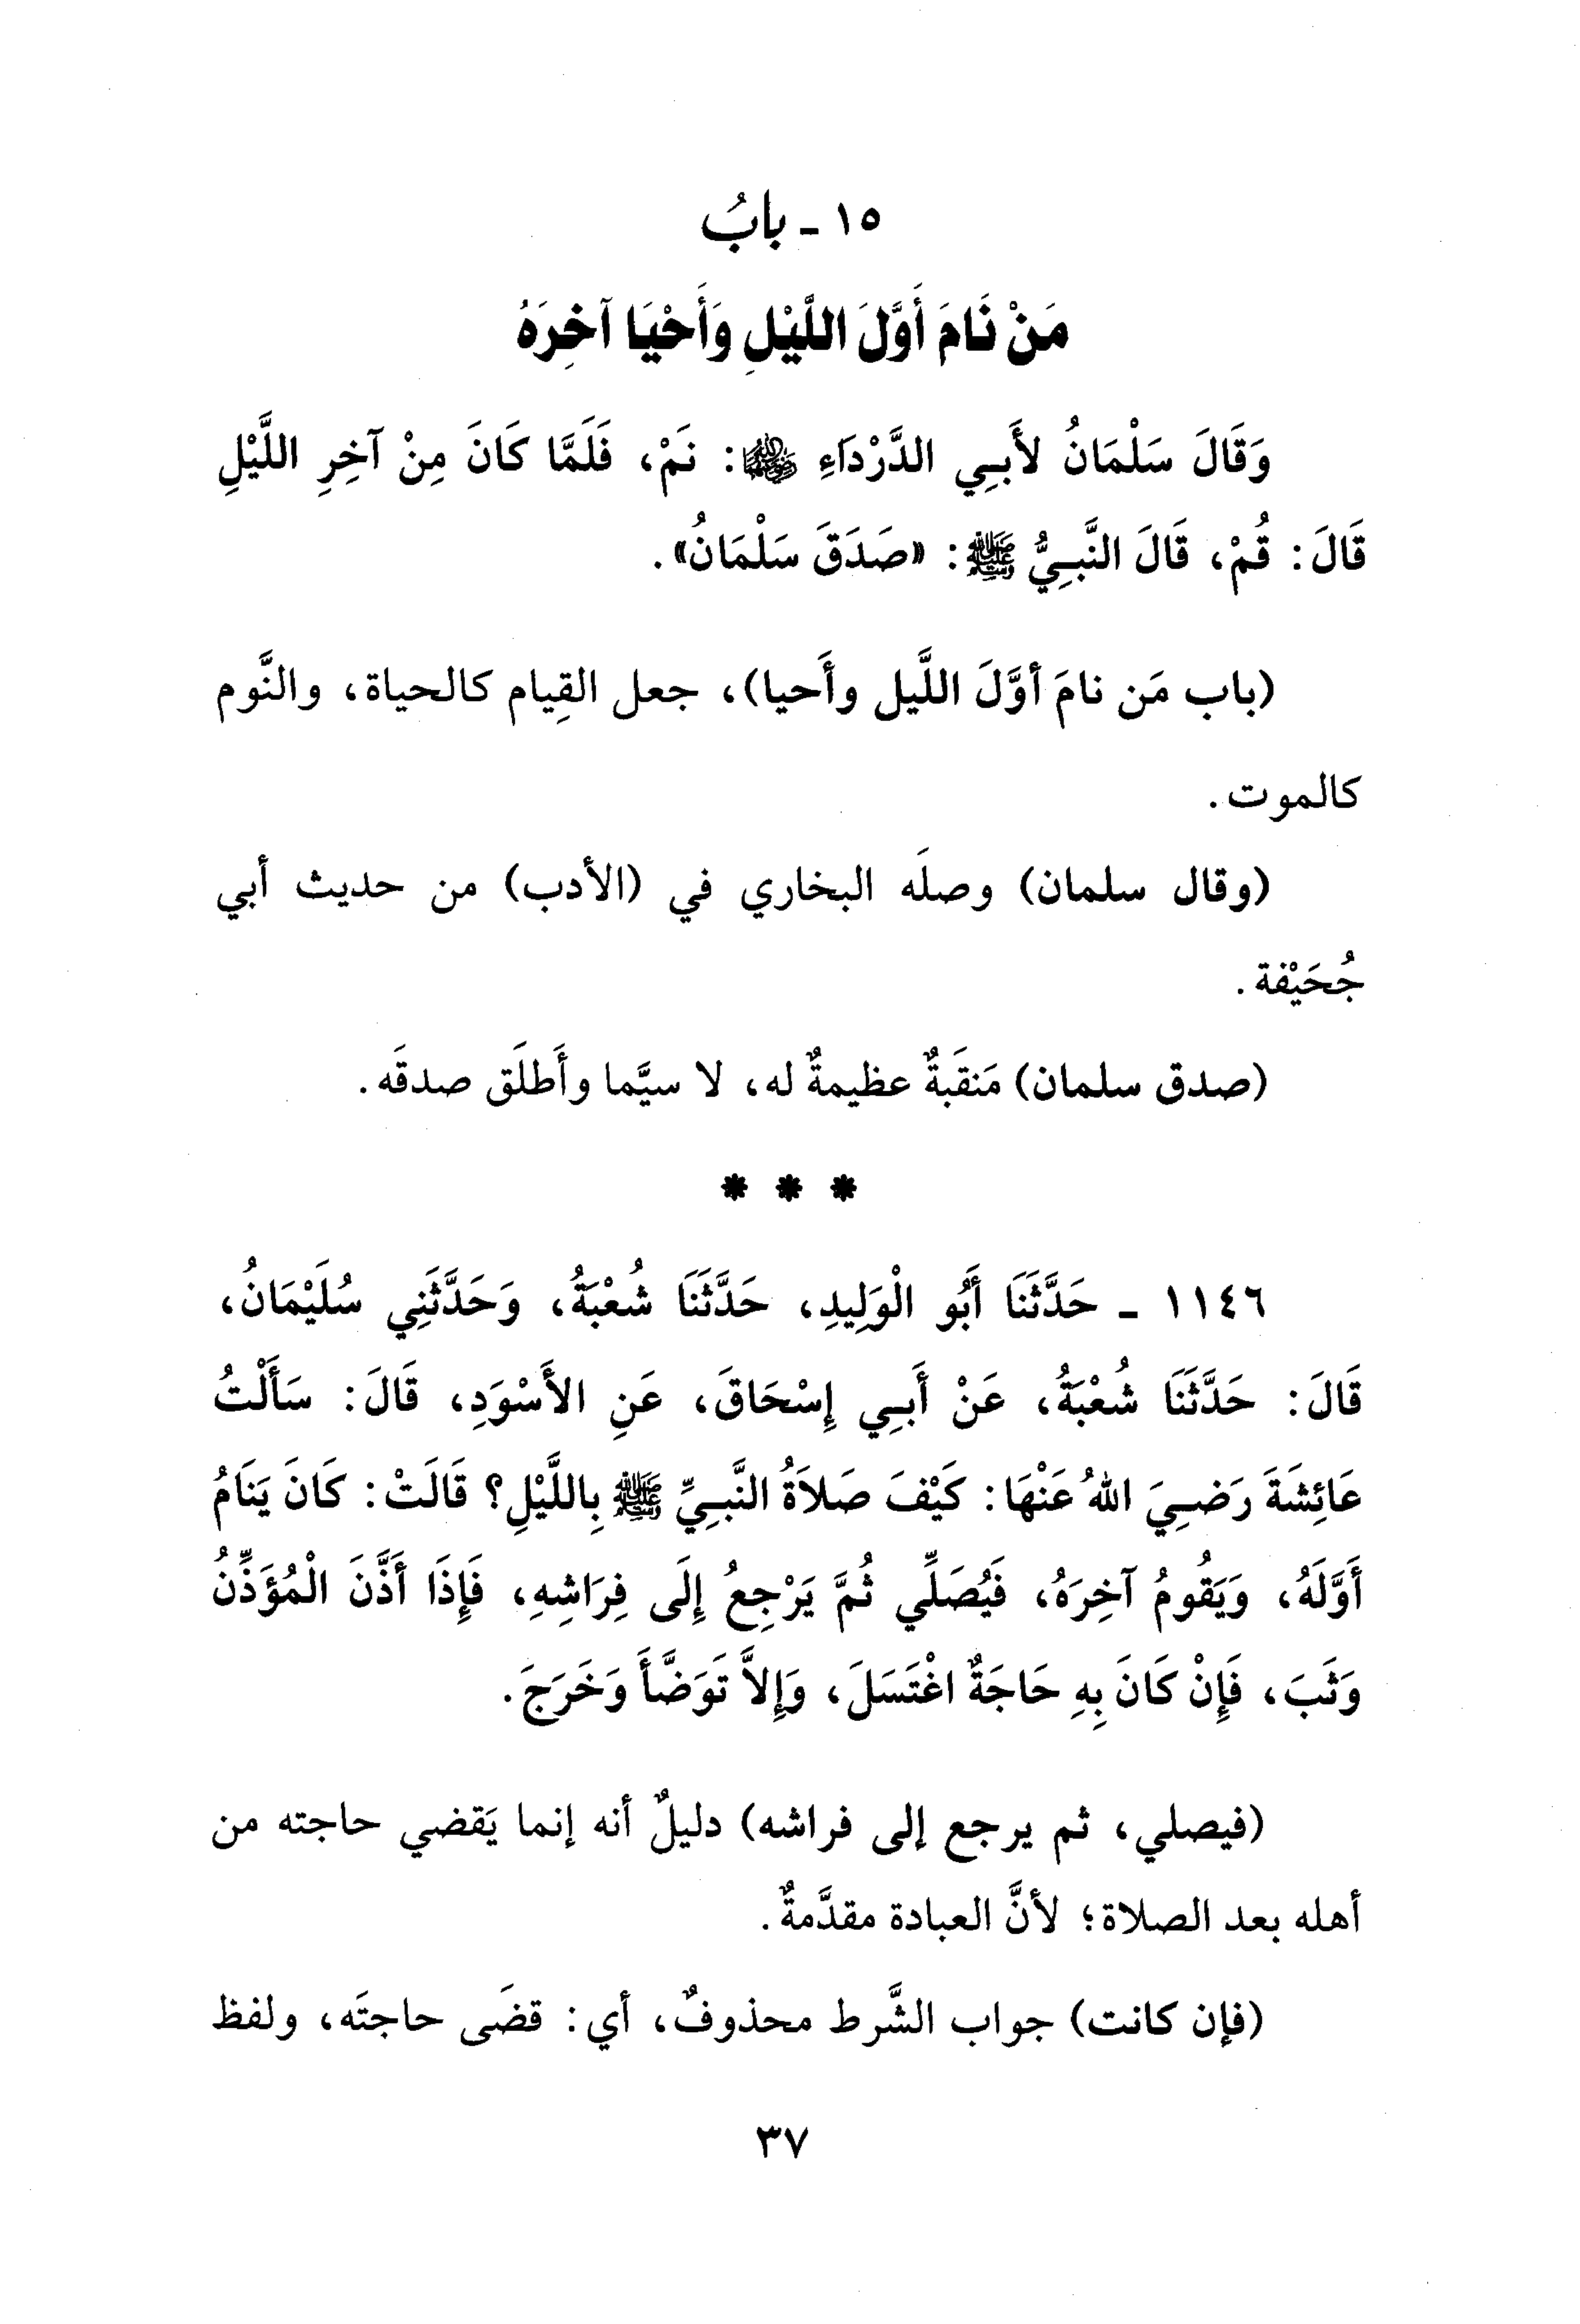 ١٥ - بابُ
مَنْ نَامَ أَوَّلَ اللَّيْلِ وَأَحْيَا آخِرَهُ
وَقَالَ سَلْمَانُ لأَبِي الدَّرْدَاءِ رضي الله عنهما: نَمْ، فَلَمَّا كَانَ مِنْ آخِرِ اللَّيْلِ
قَالَ: قُمْ، قَالَ النَّبِيُّ ﷺ: «صَدَقَ سَلْمَانُ».
(باب مَن نامَ أوَّلَ اللَّيل وأَحيا)، جعل القِيام كالحياة، والنَّوم
كالموت.
(وقال سلمان) وصلَه البخاري في (الأدب) من حديث أبي
جُحَيْفة.
(صدق سلمان) مَنقَبةٌ عظيمةٌ له، لا سيَّما وأَطلَق صدقَه.
* * *
١١٤٦ - حَدَّثَنَا أَبُو الْوَلِيدِ، حَدَّثَنَا شُعْبَةُ، وَحَدَّثَنِي سُلَيْمَانُ،
قَالَ: حَدَّثَنَا شُعْبَةُ، عَنْ أَبِي إِسْحَاقَ، عَنِ الأَسْوَدِ، قَالَ: سَأَلْتُ
عَائِشَةَ رَضِيَ اللهُ عَنْهَا: كَيْفَ صَلاَةُ النَّبِيِّ ﷺ بِاللَّيْلِ؟ قَالَتْ: كَانَ يَنَامُ
أَوَّلَهُ، وَيَقُومُ آخِرَهُ، فَيُصَلِّي ثُمَّ يَرْجِعُ إِلَى فِرَاشِهِ، فَإِذَا أَذَّنَ الْمُؤَذِّنُ
وَثَبَ، فَإِنْ كَانَ بِهِ حَاجَةٌ اغْتَسَلَ، وَإِلاَّ تَوَضَّأَ وَخَرَجَ.
(فيصلي، ثم يرجع إلى فراشه) دليلٌ أنه إنما يَقضي حاجته من
أهله بعد الصلاة؛ لأنَّ العبادة مقدَّمةٌ.
(فإن كانت) جواب الشَّرط محذوفٌ، أي: قضَى حاجتَه، ولفظ
٣٧